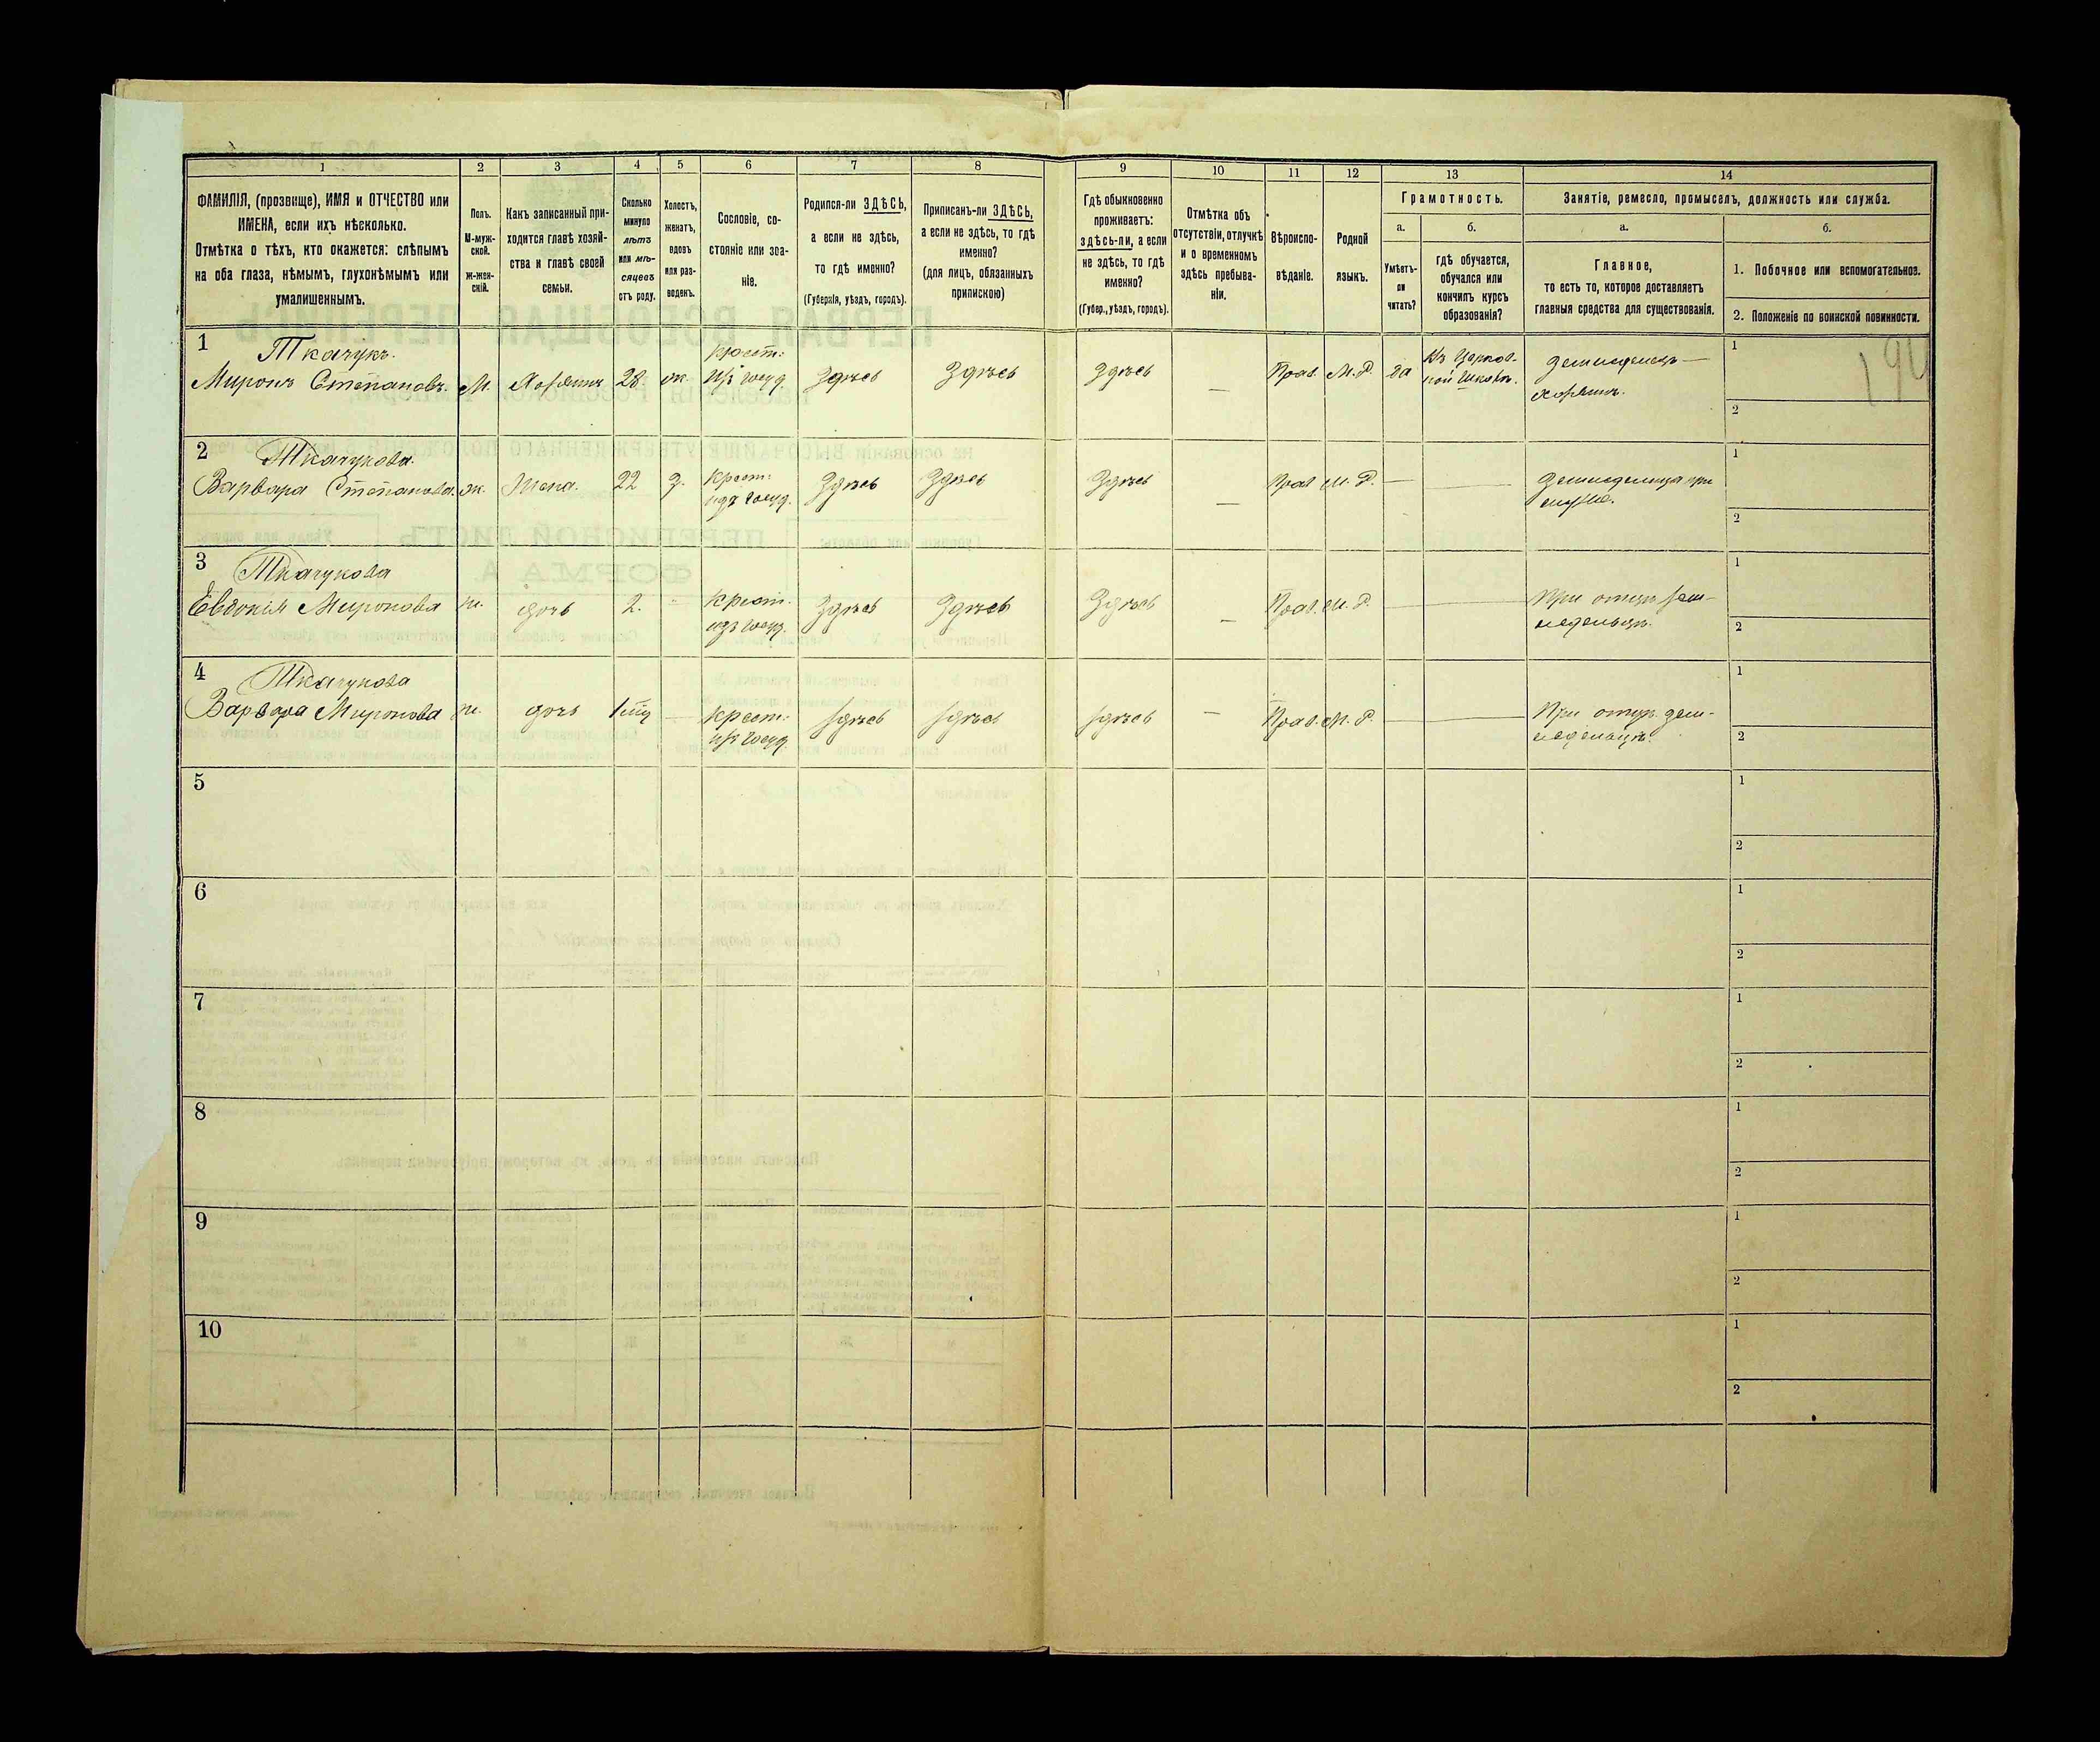 1
2
3
4
5
6
7
8
9
10
11
12
13
14
ФАМИЛІЯ, (прозвище), ИМЯ и ОТЧЕСТВО или
ИМЕНА, если ихъ нѣсколько.
Отмѣтка о тѣхъ, кто окажется: слѣпымъ
на оба глаза, нѣмымъ, глухонѣмымъ или
умалишеннымъ.
Полъ.
М-муж-
ской.
Ж-жен-
скій.
Какъ записанный при-
ходится главѣ хозяй-
ства и главѣ своей
семьи.
Сколько
минуло
лѣтъ
или мѣ-
сяцевъ
отъ роду.
Холостъ,
женатъ,
вдовъ
или раз-
веденъ.
Сословіе, со-
стояніе или зва-
ніе.
Родился-ли ЗДѢСЬ,
а если не здѣсь,
то гдѣ именно?
(Губернія, уѣздъ, городъ).
Приписанъ-ли ЗДѢСЬ,
а если не здѣсь, то гдѣ
именно?
(для лицъ, обязанныхъ
припискою)
Гдѣ обыкновенно
проживаетъ:
здѣсь-ли, а если
не здѣсь, то гдѣ
именно?
(Губер., уѣздъ, городъ).
Отмѣтка объ
отсутствіи, отлучкѣ
и о временномъ
здѣсь пребыва-
ніи.
Вѣроиспо-
вѣданіе.
Родной
языкъ.
Грамотность.
а.
Умѣетъ-
ли
читать?
б.
гдѣ обучается,
обучался или
кончилъ курсъ
образованія?
Занятіе, ремесло, промыселъ, должность или служба.
а.
Главное,
то есть то, которое доставляетъ
главныя средства для существованія.
б.
1. Побочное или вспомогательное.
2. Положеніе по воинской повинности.
1
Ткачукъ.
Миронъ Степановъ.
М.
Хозяинъ
28.
ж.
крест:
изъ госуд.
Здѣсь
Здѣсь
Здѣсь
—
Прав.
М. Р.
да
Въ Церков-
ной Школѣ.
Земледѣлецъ —
хозяинъ.
1
2
2
Ткачукова.
Варвара Степанова.
ж.
Жена.
22
з.
крест:
изъ госуд.
Здѣсь
Здѣсь
Здѣсь
—
Прав
М. Р.
—
—
Земледѣлица при
мужѣ.
1
2
3
Ткачукова
Евдокія Миронова
ж.
дочь
2.
-
крест.
изъ госуд.
Здѣсь
Здѣсь
Здѣсь
—
Прав.
М. Р.
—
—
При отцѣ зем-
ледѣльцѣ.
1
2
4
Ткачукова
Варвара Миронова
ж.
дочь
—
крест:
изъ госуд.
Здѣсь
Здѣсь
Здѣсь
—
Прав.
М. Р.
—
При отцѣ зем-
ледѣльцѣ.
1
2
5
1
2
6
1
2
7
1
2
8
1
2
9
1
2
10
1
2